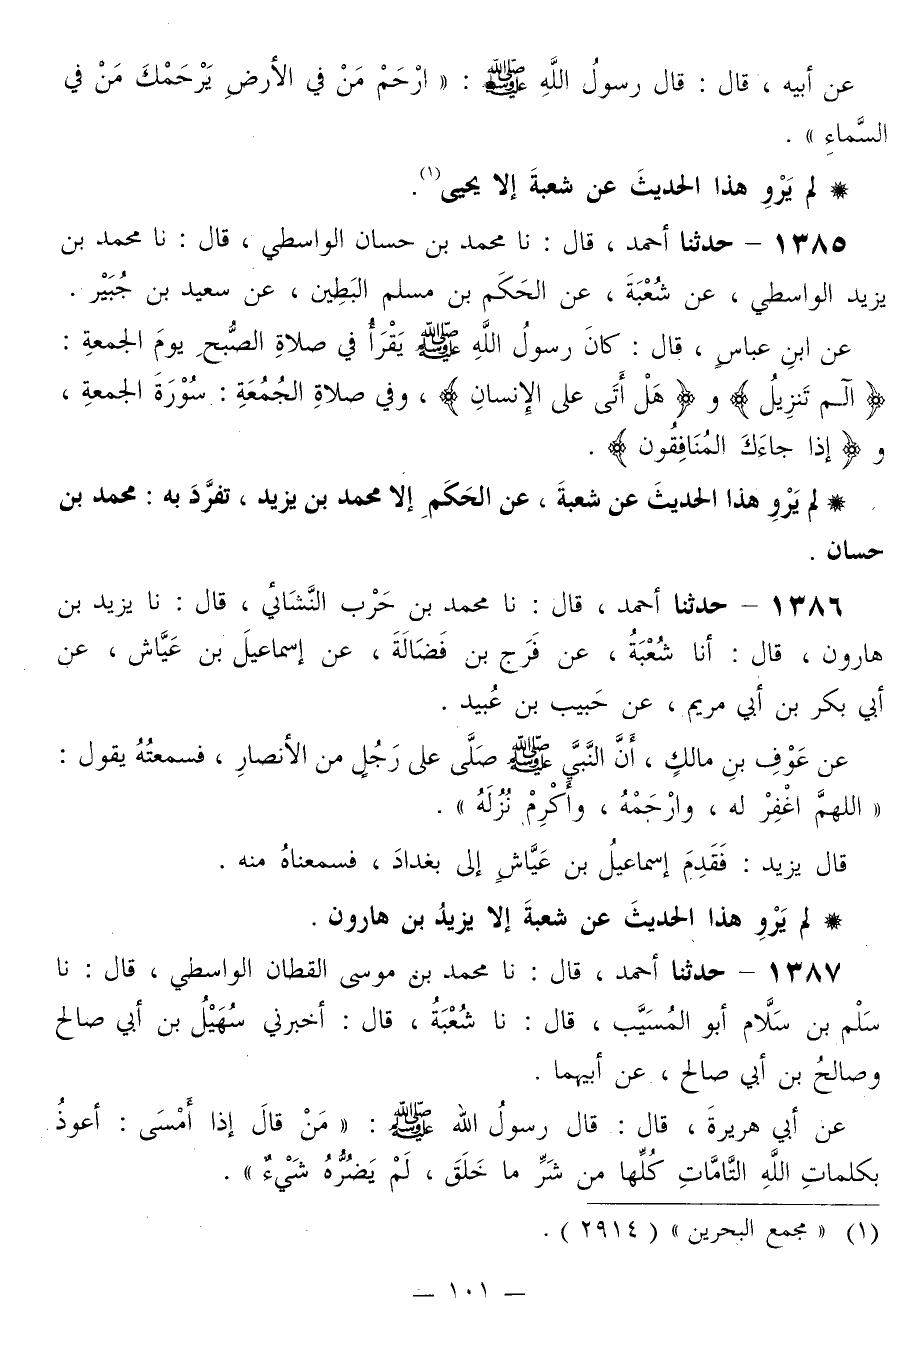 عن أبيه ، قال : قال رسولُ اللَّهِ ﷺ : « ارْحَمْ مَنْ في الأرضِ يَرْحَمْكَ مَنْ في
السَّماءِ » .
* لم يَرْوِ هذا الحديثَ عن شعبةَ إلا يحيى(١).
١٣٨٥ – حدثنا أحمد ، قال : نا محمد بن حسان الواسطي ، قال : نا محمد بن
يزيد الواسطي ، عن شُعْبَةَ ، عن الحَكَم بن مسلم البَطِين ، عن سعيد بن جُبَيْر .
عن ابنِ عباسٍ ، قال : كانَ رسولُ اللَّهِ ﷺ يَقْرَأُ في صلاةِ الصُّبحِ يومَ الجمعةِ :
﴿ الٓـم تَنزِيلُ ﴾ و ﴿ هَلْ أَتَى على الإِنسانِ ﴾ ، وفي صلاةِ الجُمُعَةِ : سُوْرَةَ الجمعةِ ،
و ﴿ إذا جاءَكَ المُنَافِقُون ﴾ .
* لم يَرْوِ هذا الحديثَ عن شعبةَ ، عن الحَكَمِ إلا محمد بن يزيد ، تفرَّدَ به : محمد بن
حسان .
١٣٨٦ – حدثنا أحمد ، قال : نا محمد بن حَرْب النَّشَائي ، قال : نا يزيد بن
هارون ، قال : أنا شُعْبَةُ ، عن فَرَج بن فَضَالَةَ ، عن إسماعيلَ بن عَيَّاش ، عن
أبي بكر بن أبي مريم ، عن حَبيب بن عُبيد .
عن عَوْفِ بنِ مالكٍ ، أَنَّ النَّبيَّ ﷺ صَلَّى على رَجُلٍ من الأنصارِ ، فسمعتُهُ يقول :
« اللهمَّ اغْفِرْ له ، وارْحَمْهُ ، وأَكْرِمْ نُزُلَهُ » .
قال يزيد : فَقَدِمَ إسماعيلُ بن عَيَّاشٍ إلى بغدادَ ، فسمعناهُ منه .
* لم يَرْوِ هذا الحديثَ عن شعبةَ إلا يزيدُ بن هارون .
١٣٨٧ – حدثنا أحمد ، قال : نا محمد بن موسى القطان الواسطي ، قال : نا
سَلْم بن سَلَّام أبو المُسَيَّب ، قال : نا شُعْبَةُ ، قال : أخبرني سُهَيْلُ بن أبي صالح
وصالحُ بن أبي صالح ، عن أبيهما .
عن أبي هريرةَ ، قال : قال رسولُ الله ﷺ : « مَنْ قالَ إذا أَمْسَى : أعوذُ
بكلماتِ اللَّهِ التَّامَّاتِ كُلِّها من شَرِّ ما خَلَقَ ، لَمْ يَضُرُّهُ شَيْءٌ » .
(١) « مجمع البحرين » ( ٢٩١٤ ) .
— ١٠١ —